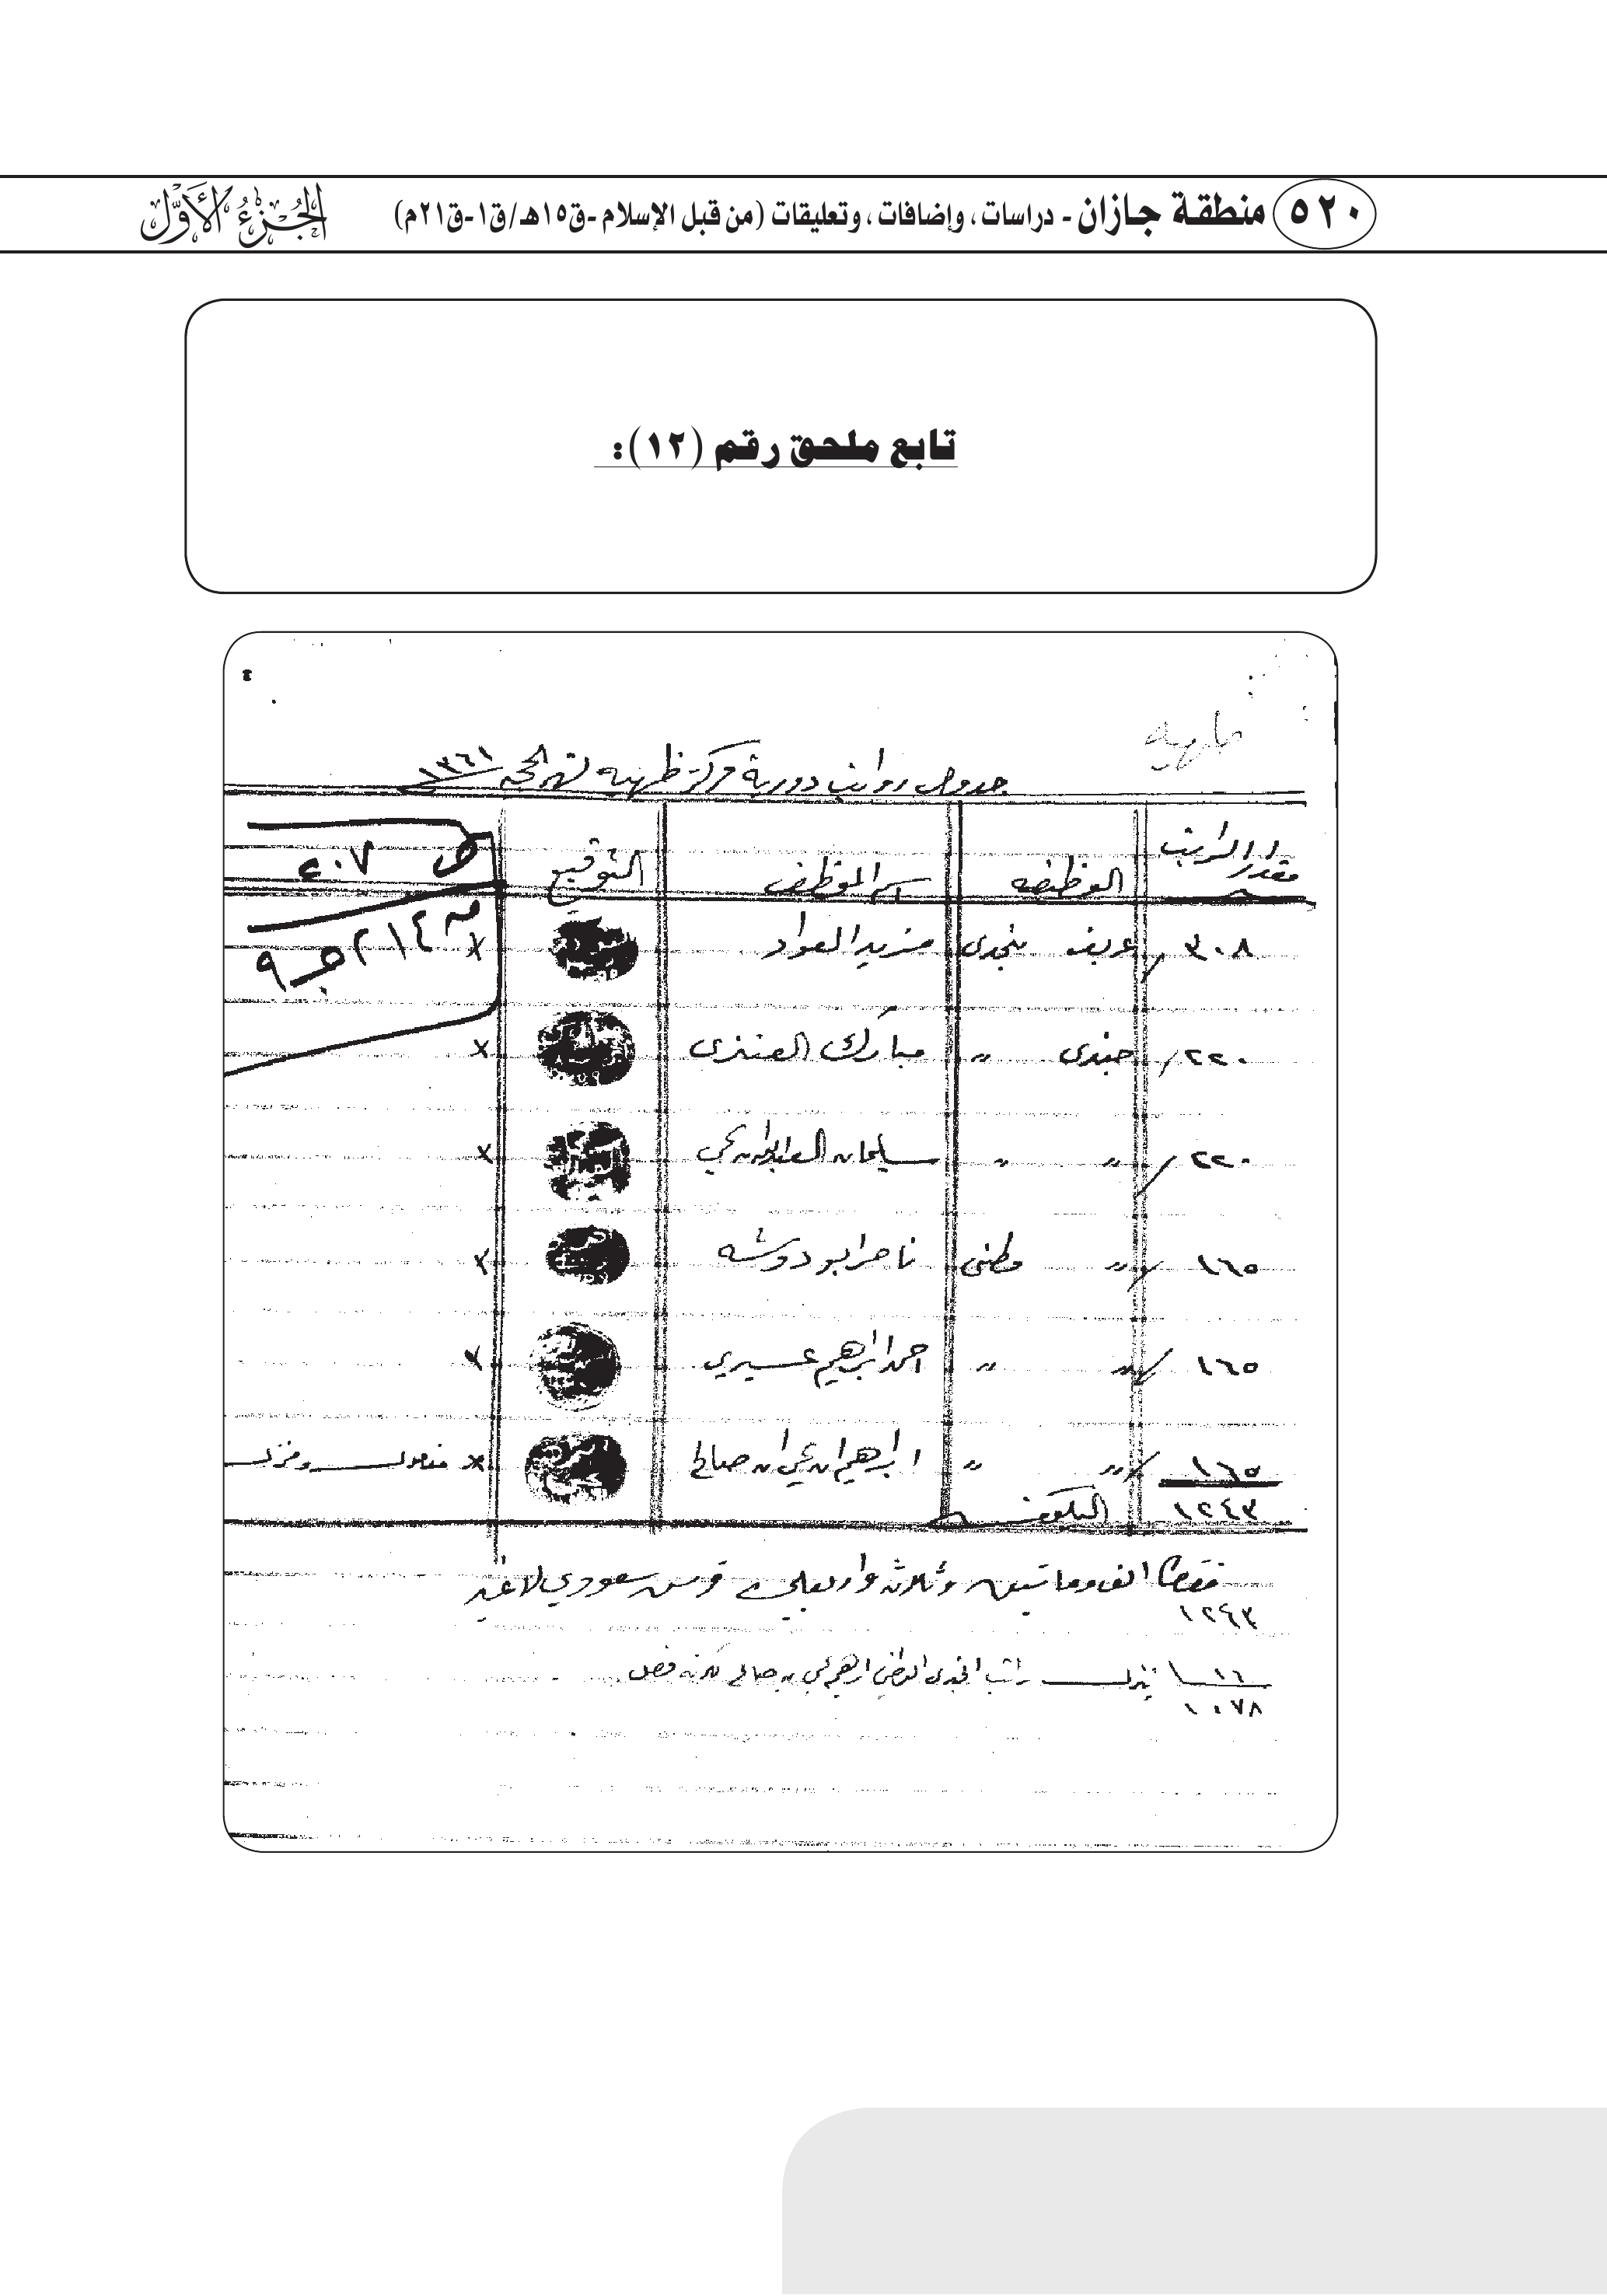 ٥٢٠ منطقة جازان - دراسات، وإضافات، وتعليقات (من قبل الإسلام -ق١٥هـ/ق١-ق٢١م) الجزء الأول
تابع ملحق رقم (١٢):
ظهيه
جدول رواتب دورية مركز ظهيه شهر الحجه ١٣٦١
مقدار الراتب الوظيفه اسم الموظف التوقيع
ص ٤٠٧
٣٠٨ عريف نجدى مزيد العواد x
٢٢٠ جندى " مبارك العنزى x
٢٢٠ " " سليمان x
١٦٥ " وطنى ناصر ابو دوشه x
١٦٥ " " احمد ابراهيم عسيري x
١٦٥ " " ابراهيم ابن يحي ابن صالح x مفصول
١٢٤٣
فقط الف ومأتين وثلاثه واربعين قرش سعودي لاغير
١٢٤٣
ينزل راتب الجندى الوطني ابراهيم يحي بن صالح لكونه فصل
١٠٧٨